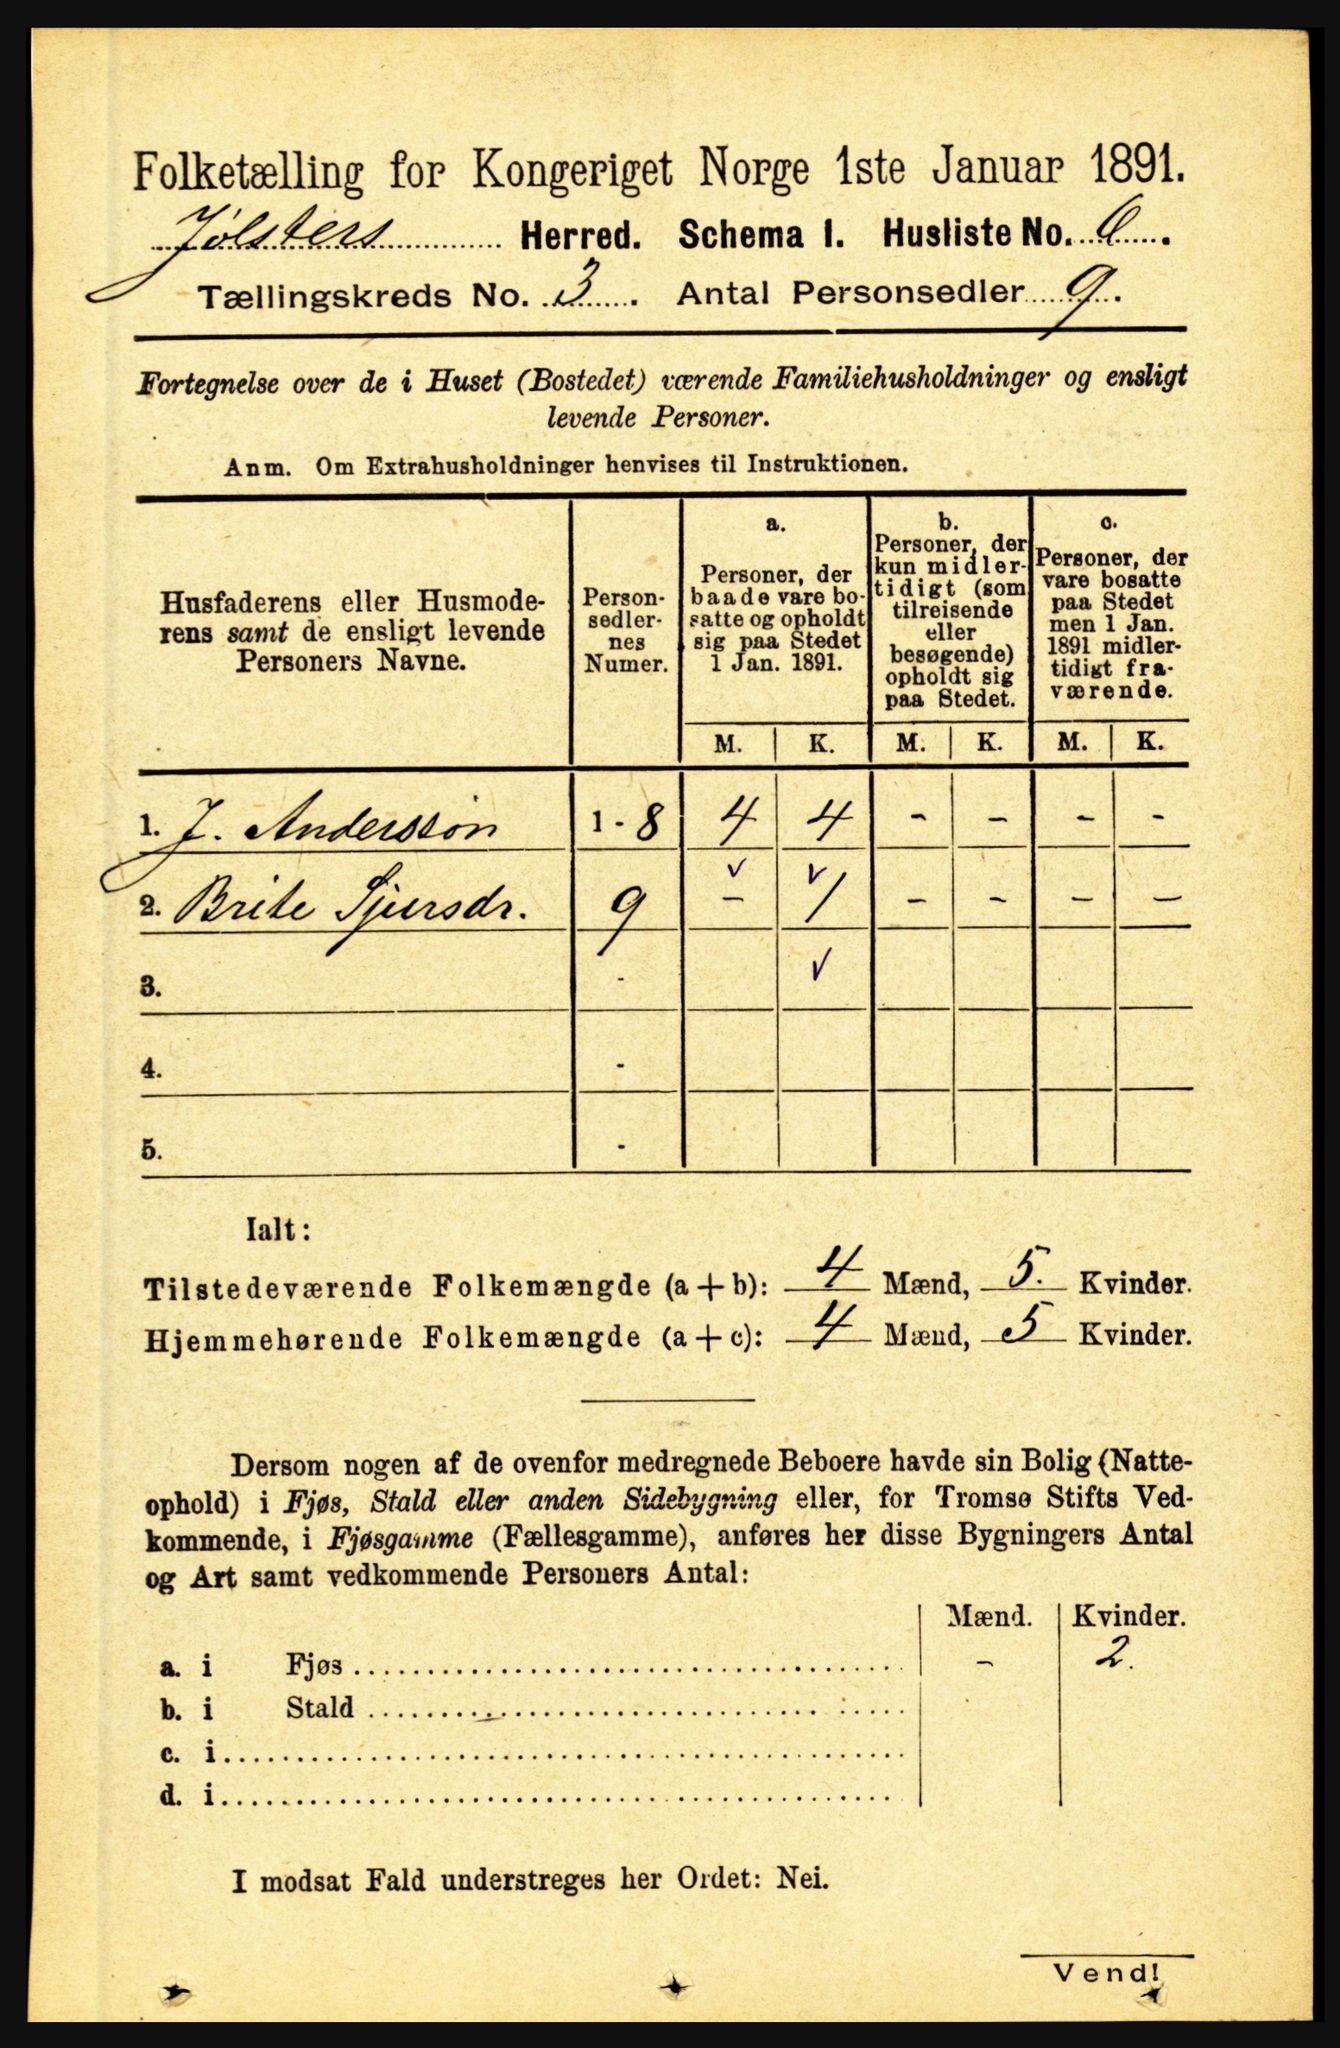 Folketælling for Kongeriget Norge 1ste Januar 1891.
Jølsters Herred. Schema 1. Husliste No. 6.
Tællingskreds No. 3. Antal Personsedler 9.
Fortegnelse over de i Huset (Bostedet) værende Familiehusholdninger og ensligt
levende Personer.
Anm. Om Extrahusholdninger henvises til Instruktionen.
Husfaderens eller Husmode-
rens samt de ensligt levende
Personers Navne.
Person-
sedler-
nes
Numer.
a.
Personer, der
baade vare bo-
satte og opholdt
sig paa Stedet
1 Jan. 1891.
b.
Personer, der
kun midler-
tidigt (som
tilreisende
eller
besøgende)
opholdt sig
paa Stedet.
c.
Personer, der
vare bosatte
paa Stedet
men 1 Jan.
1891 midler-
tidigt fra-
værende.
M. K. M. K. M. K.
1. J. Anderssøn 1 - 8 4 4 - - - -
2. Brite Sjursdr. 9 - 1 - - - -
3. -
4. -
5. -
Ialt:
Tilstedeværende Folkemængde (a + b): 4 Mænd, 5. Kvinder.
Hjemmehørende Folkemængde (a + c): 4 Mænd, 5 Kvinder.
Dersom nogen af de ovenfor medregnede Beboere havde sin Bolig (Natte-
ophold) i Fjøs, Stald eller anden Sidebygning eller, for Tromsø Stifts Ved-
kommende, i Fjøsgamme (Fællesgamme), anføres her disse Bygningers Antal
og Art samt vedkommende Personers Antal:
Mænd. Kvinder.
a. i Fjøs - 2.
b. i Stald
c. i
d. i
I modsat Fald understreges her Ordet: Nei.
Vend!